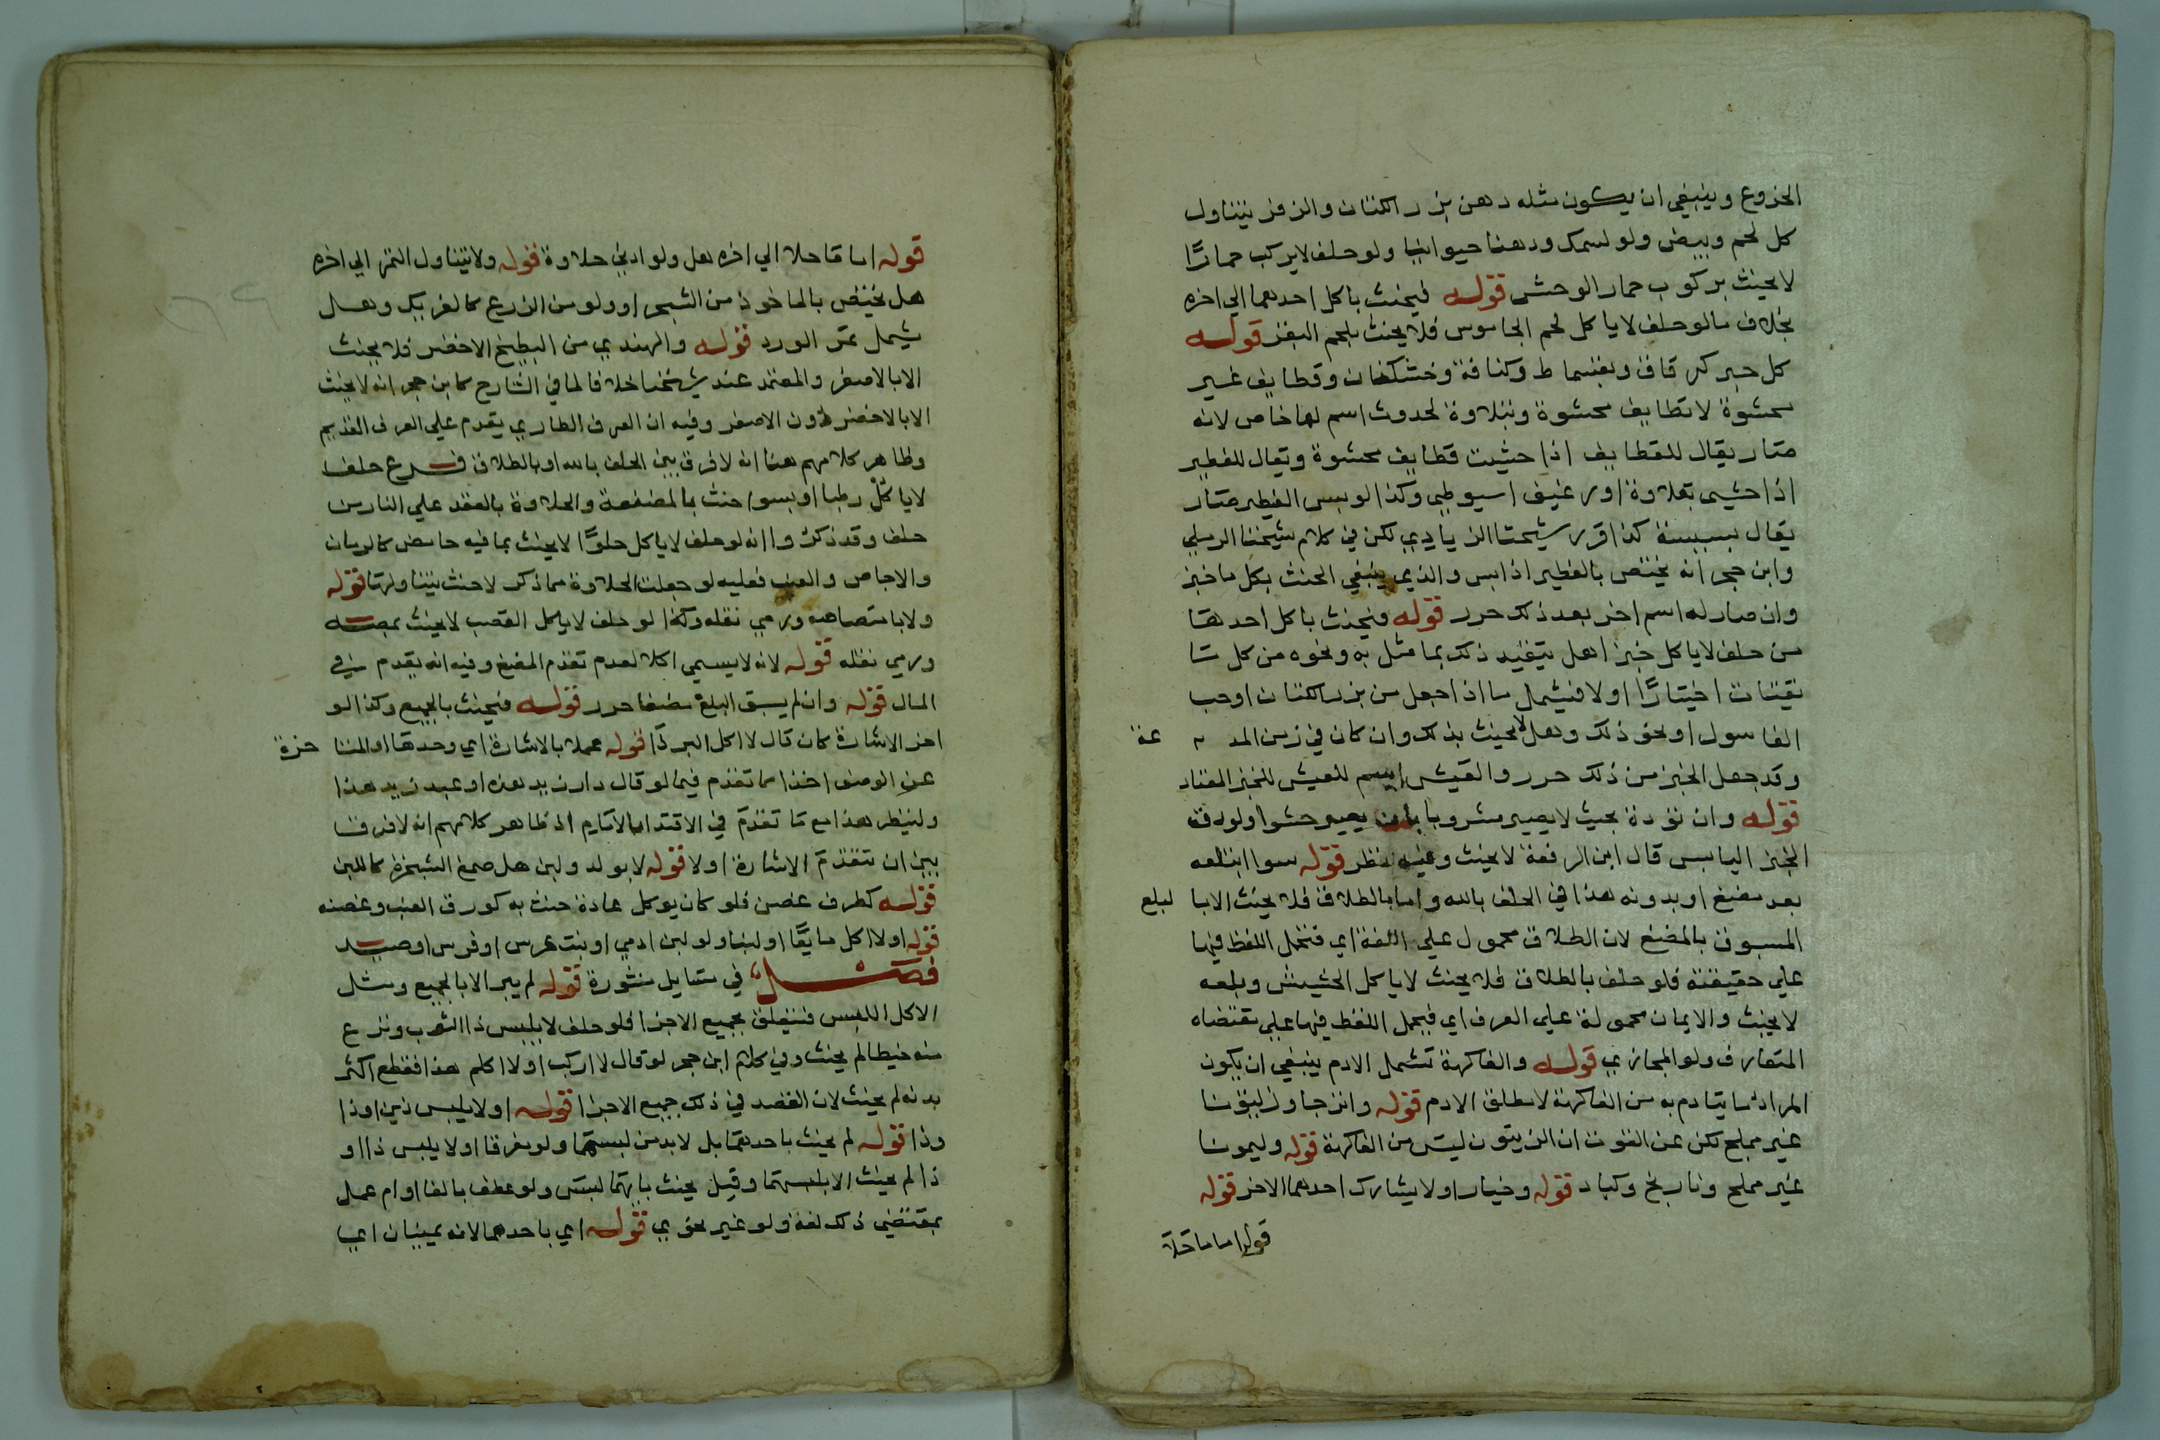 الخزوع وينبغي ان يكون مثله دهن بزر الكتان والزفر يتناول
كل لحم وبيض ولو لسمك ودهنا حيوانيا ولو حلف لا يركب حمارًا
لا يحنث بركوب حمار الوحش قوله فيحنث باكل احدهما الي اخره
بخلاف ما لو حلف لا ياكل لحم الجاموس فلا يحنث بلحم البقر قوله
كل خبر كرقاق وبقسماط وكنافة وخشكنان وقطايف غير
محشوة لا قطايف محشوة وبقلاوة لحدوث اسم لها خاص لانه
صار يقال للقطايف اذا حشيت قطايف محشوة ويقال للفطير
اذا حشي بقلاوة او رغيف اسيوطي وكذا لو بس الفطير صار
يقال بسيسة كذا قرر شيخنا الزيادي لكن في كلام شيخنا الرملي
وابن حجر انه يختص بالفطير اذا بس والذي ينبغي الحنث بكل ما خبز
وان صار له اسم اخر بعد ذلك حرر قوله فيحنث باكل احدها
من حلف لا ياكل خبزا هل يتقيد ذلك بما مثل به ونحوه من كل ما
يقتات اختيارًا اولا فيشمل ما اذا جعل من بزر الكتان او حب
الغاسول او نحو ذلك وهل لا يحنث بذلك وان كان في زمن المد عة
وقد جعل الخبز من ذلك حرر والعيش اسم للعيش للخبز المعتاد
قوله وان ثرده بحيث لا يصير مشروبا بان يصير حشوا ولو دق
الخبز اليابس قال ابن الرفعة لا يحنث وفيه نظر قوله سوا ابتلعه
بعد مضغ او بدونه هذا في الحلف بالله واما بالطلاق فلا يحنث الا با لبلع
المسبوق بالمضغ لان الطلاق محمول علي اللغة اي فتحمل اللفظ فيها
علي حقيقته فلو حلف بالطلاق فلا يحنث لا ياكل الحشيش وبلعه
لا يحنث والايمان محمولة علي العرف اي فيحمل اللفظ فيها علي مقتضاه
المتعارف ولو المجازي قوله والفاكهة تشمل الادم ينبغي ان يكون
المراد ما يتادم به من الفاكهة لا مطلق الادم قوله واترجا وزيتونا
غير مملح لكن عن القوت ان الزيتون ليس من الفاكهة قوله وليمونا
غير مملح ونارنج وكباد قوله وخيارا ولا يشارك احدهما الاخر قوله
قوله اما ما حلا
قوله اما ما حلا الي اخره هل ولو ادني حلاوة قوله ولا يتناول الثمر الي اخره
هل يختص بالماخوذ من الشجر او ولو من الزرع كالفريك وهل
يشمل ثمر الورد قوله والهندي من البطيخ الاخضر فلا يحنث
الا بالاصفر والمعتمد عند شيخنا خلافا لما في الشارح كابن حجر انه لا يحنث
الا بالاخضر دون الاصفر وفيه ان العرف الطاري يقدم علي العرف القديم
وظاهر كلامهم هنا انه لا فرق بين الحلف بالله او بالطلاق فرع حلف
لا ياكل رطبا او بسرا حنث بالمنصفة والحلاوة بالعقد علي النار من
حلف وقد ذكروا انه لو حلف لا ياكل حلوًا لا يحنث بما فيه حامض كالرمان
والاجاص والعنب فعليه لو جعلت الحلاوة مما ذكر لا حنث بتناولها قوله
ولا بامتصاصه ورمي ثفله وكذا لو حلف لا ياكل القصب لا يحنث بمصه
ورمي ثفله قوله لانه لا يسمي اكلا لعدم تقدم المضغ وفيه انه يقدم في
المال قوله وان لم يسبق البلع مضغا حرر قوله فيحنث بالجميع وكذا لو
اخر الاشارة كان قال لا اكل البر ذا قوله عملا بالاشارة اي وحدها المتا خرة
عن الوصف اخذا مما تقدم فيما لو قال دار زيد هذه او عبد زيد هذا
ولينظر هذا مع ما تقدم في الاقتدا بالامام اذ ظاهر كلامهم انه لا فرق
بين ان تتقدم الاشارة اولا قوله لا بولد ولبن هل صمغ الشجرة كاللبن
قوله كطرف غصن فلو كان يوكل عادة حنث به كورق العنب وغصنه
قوله او لا اكل مايعًا او لبنا ولو لبن ادمي او بنت عرس او فرس او صيد
فصل في مسايل منثورة قوله لم يبر الا بالجميع ومثل
الاكل اللبس فيتعلق بجميع الاجزا فلو حلف لا يلبس ذا الثوب ونزع
منه خيطا لم يحنث وفي كلام ابن حجر لو قال لا اركب او لا اكلم هذا فقطع اكثر
بدنه لم يحنث لان القصد في ذلك جميع الاجزا قوله او لا يلبس ذين او ذا
وذا قوله لم يحنث باحدهما بل لا بد من لبسهما ولو مفرقا او لا يلبس ذا او
ذا لم يحنث الا بلبسهما وقيل يحنث بايهما لبس ولو عطف بالفا او ثم عمل
بمقتضي ذلك لغة ولو غير نحوي قوله اي باحدهما لانه يمينان اي